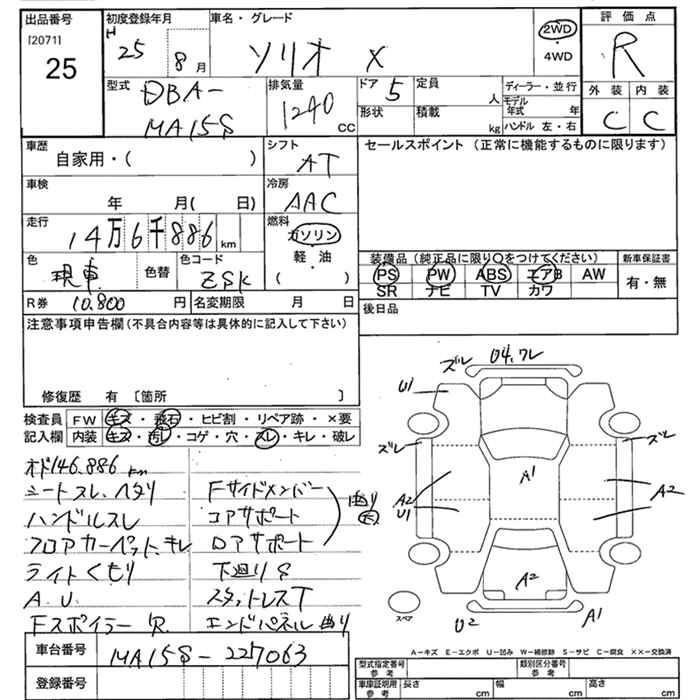 出品番号
[2071]
25
初度登録年月
H 25 8 月
車名・グレード
ソリオ X
2WD
・
4WD
評価点
R
外装 内装
C C
型式
DBA-
MA15S
排気量
1240 CC
ドア 5
形状
定員 人
積載 kg
ディーラー・並行
モデル年式 年
ハンドル 左・右
車歴
自家用・( )
シフト
AT
車検
年 月( 日)
冷房
AAC
走行
14万6千886 km
燃料
ガソリン
軽・油
( )
色
現車
色替
色コード
ZSK
R券 10.800 円
名変期限 月 日
セールスポイント (正常に機能するものに限ります)
装備品 (純正品に限り○をつけてください)
PS PW ABS エアB AW
SR ナビ TV カワ
新車保証書
有・無
後日品
注意事項申告欄(不具合内容等は具体的に記入して下さい)
修復歴 有 〔箇所 〕
検査員
記入欄
FW キズ・飛石・ヒビ割・リペア跡・×要
内装 キズ・汚レ・コゲ・穴・スレ・キレ・破レ
オド146.886 km
シートスレ、ヘタリ
ハンドルスレ
フロアカーペット、キレ
ライトくもり
A.U.
Fスポイラー R.
Fサイドメンバー
コアサポート
ロアサポート
曲り
下廻りS
スタットレスT
エンドパネル曲り
ズレ U4.ワレ
U1
ズレ
ズレ
A1
A2
U1
A2
A2
U2
A1
スペア
車台番号
MA15S-227063
登録番号
A-キズ E-エクボ U-凹み W-補修跡 S-サビ C-腐食 ××-交換済
型式指定番号
参考
類別区分番号
参考
車庫証明用
参考
長さ cm
幅 cm
高さ cm